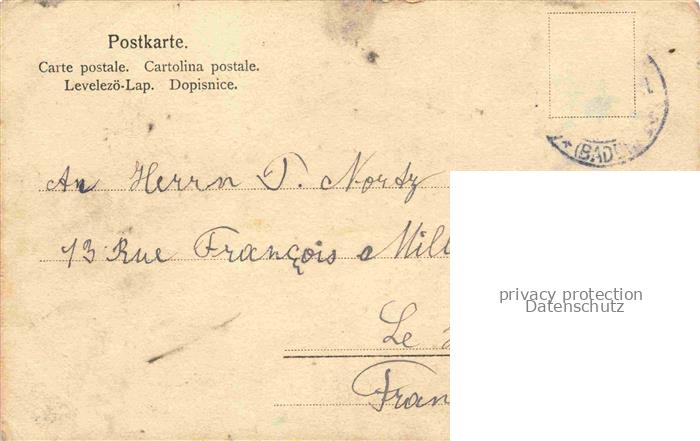 Postkarte.
Carte postale. Cartolina postale.
Levelező-Lap. Dopisnice.
(BAD
An Herrn T. Nortz
13 Rue François Mill
privacy protection
Datenschutz
Le
Fran